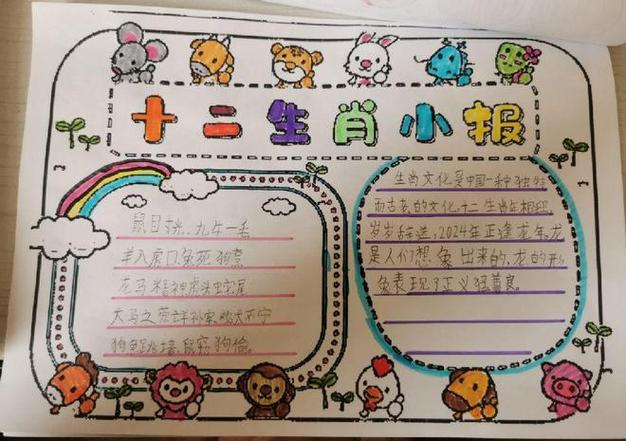 十二生肖小报
鼠目寸光、九牛一毛
羊入虎口兔死狗烹
龙马精神虎头蛇尾
犬马之劳鸡犬不宁
狗急跳墙、鼠窃狗偷。
生肖文化是中国一种独特
而古老的文化,十二生肖年相积
岁岁轮送,2024年正逢龙年,龙
是人们想象出来的,龙的形
象表现了正义猛善良。